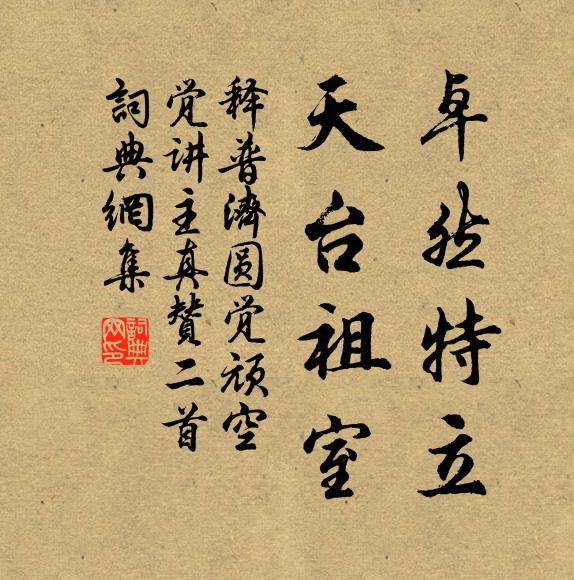 卓然特立
天台祖室
释普濟圆觉顽空
觉讲主真赞二首
詞典網集
詞典网印